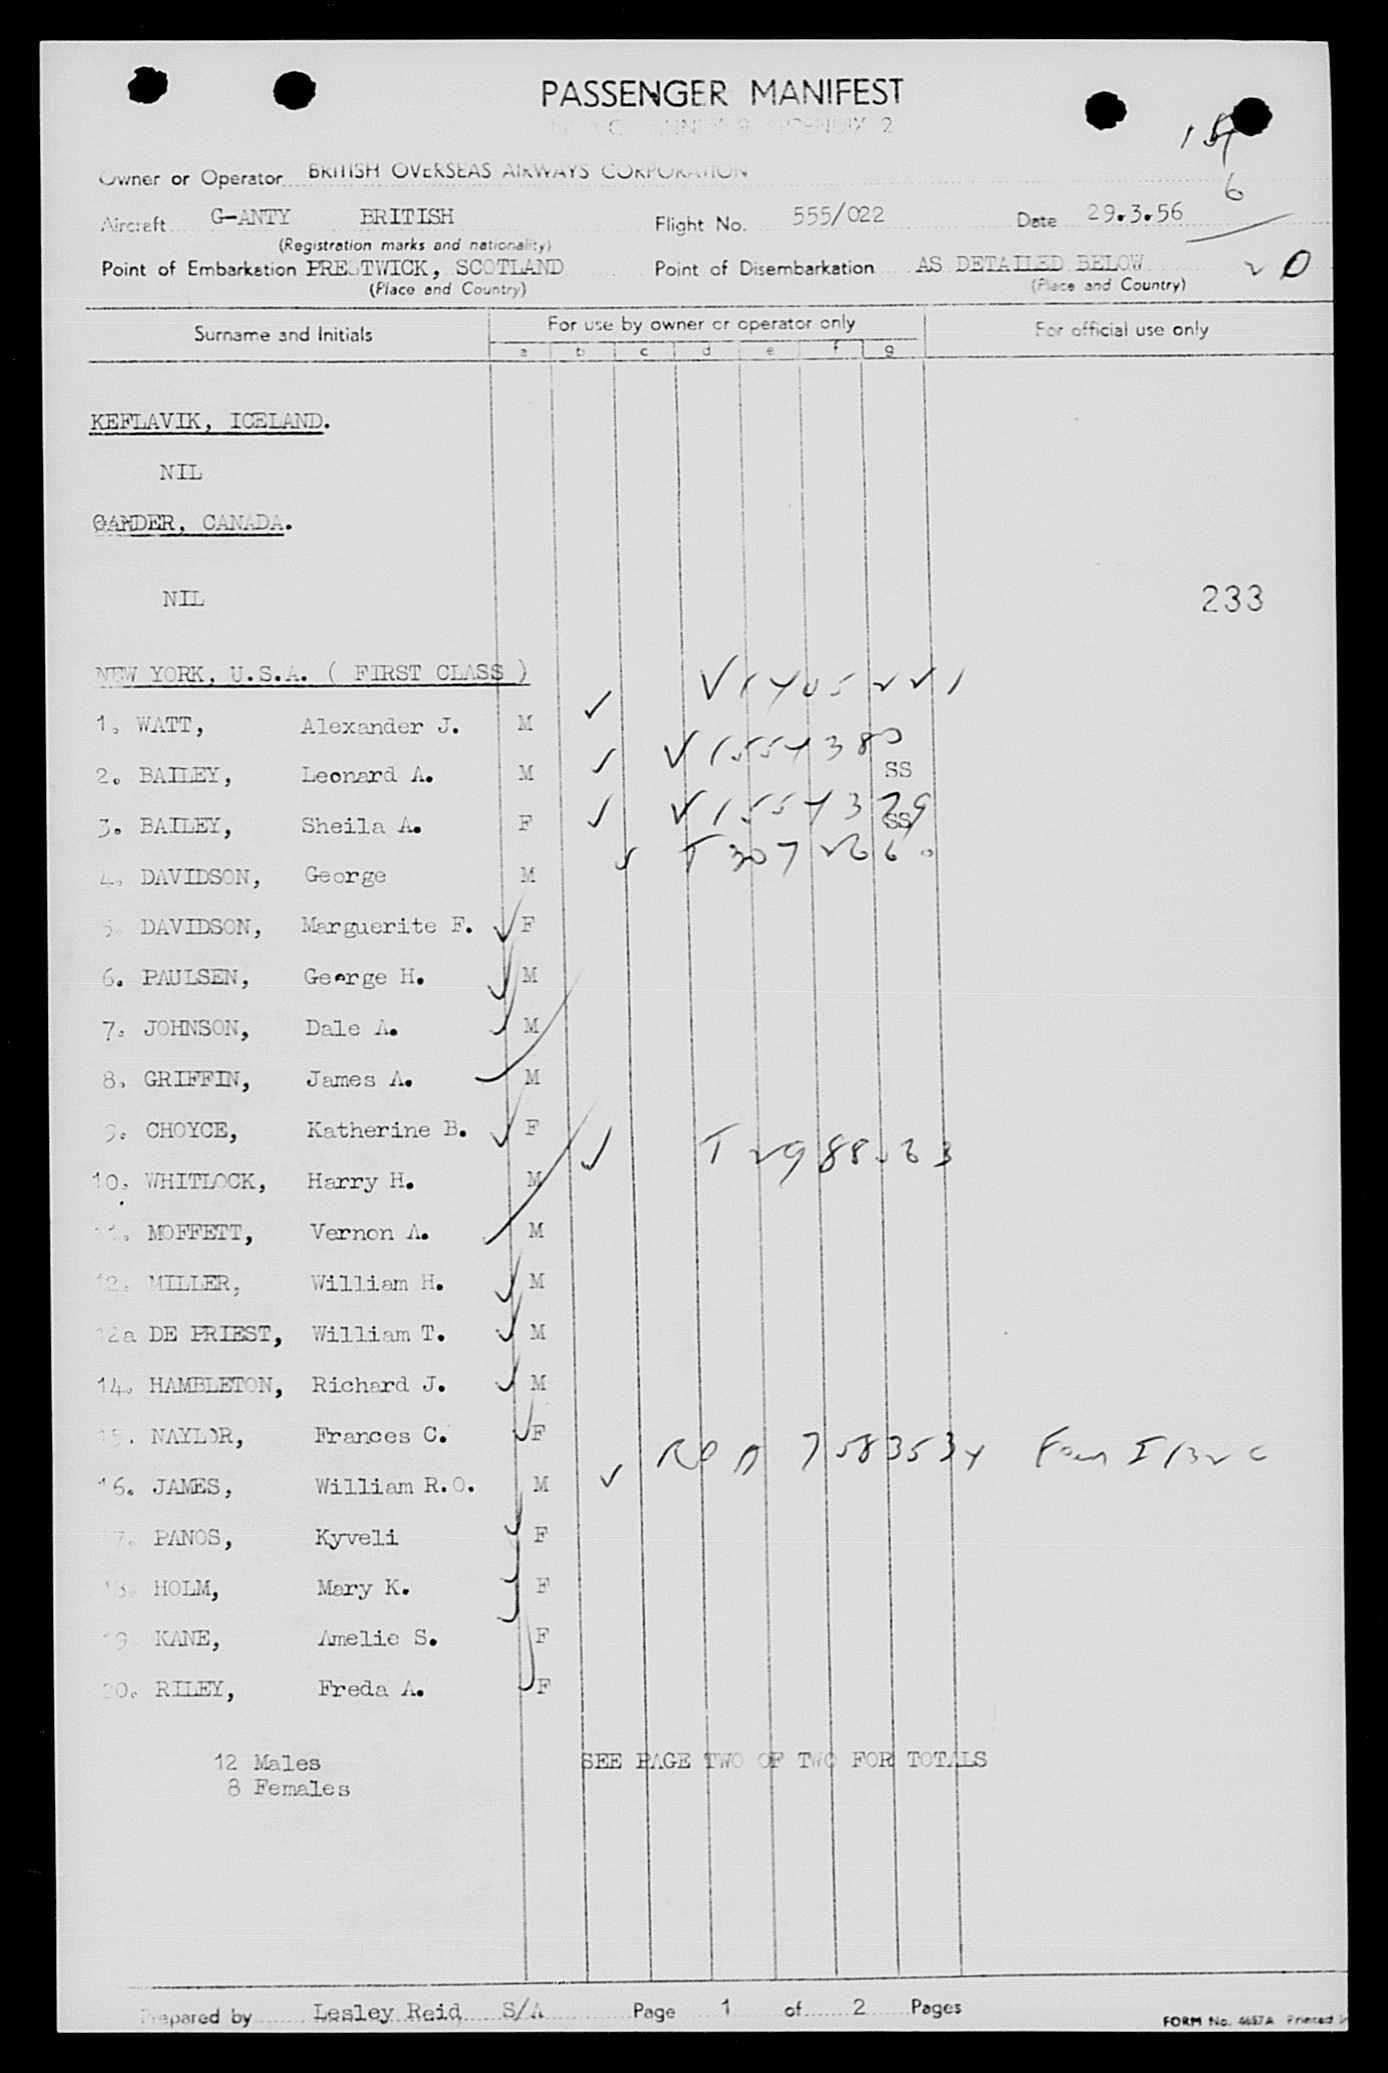 PASSENGER MANIFEST
Owner or Operator BRITISH OVERSEAS AIRWAYS CORPORATION
6
Aircraft G-ANTY BRITISH Flight No. 555/022 Date 29.3.56
(Registration marks and nationality)
Point of Embarkation PRESTWICK, SCOTLAND Point of Disembarkation AS DETAILED BELOW
(Place and Country) (Place and Country)
Surname and Initials For use by owner or operator only For official use only
a b c d e f g
KEFLAVIK, ICELAND.
NIL
GANDER, CANADA.
NIL 233
NEW YORK, U.S.A. ( FIRST CLASS )
1. WATT, Alexander J. M
2. BAILEY, Leonard A. M SS
3. BAILEY, Sheila A. F SS
4. DAVIDSON, George M
5. DAVIDSON, Marguerite F. F
6. PAULSEN, George H. M
7. JOHNSON, Dale A. M
8. GRIFFIN, James A. M
9. CHOYCE, Katherine B. F
10. WHITLOCK, Harry H. M
11. MOFFETT, Vernon A. M
12. MILLER, William H. M
12a DE PRIEST, William T. M
14. HAMBLETON, Richard J. M
15. NAYLOR, Frances C. F
16. JAMES, William R.O. M
17. PANOS, Kyveli F
18. HOLM, Mary K. F
19. KANE, Amelie S. F
20. RILEY, Freda A. F
12 Males SEE PAGE TWO OF TWO FOR TOTALS
8 Females
Prepared by Lesley Reid S/A Page 1 of 2 Pages
FORM No. 4687A Printed